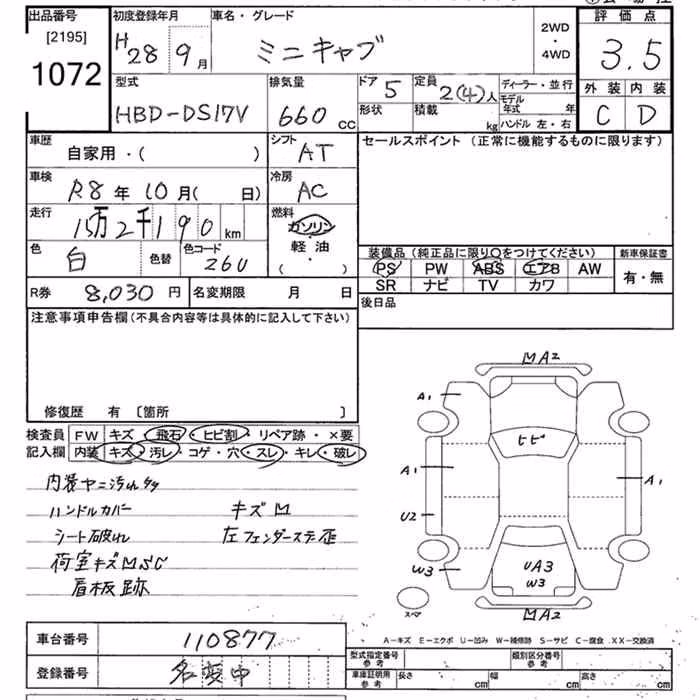 出品番号
[2195]
1072
初度登録年月
H28年9月
車名・グレード
ミニキャブ
2WD
・
4WD
評価点
3.5
外装 内装
C D
型式
HBD-DS17V
排気量
660 cc
ドア 5
形状
定員 2(4)人
積載 kg
ディーラー・並行
モデル年式 年
ハンドル 左・右
車歴
自家用・( )
シフト
AT
車検
R8年10月( 日)
冷房
AC
走行
15万2千190 km
燃料
ガソリン
軽・油
・
( )
色
白
色替
色コード
26U
セールスポイント(正常に機能するものに限ります)
装備品(純正品に限り○をつけてください)
PS PW ABS エアB AW
SR ナビ TV カワ
新車保証書
有・無
後日品
R券 8,030 円
名変期限 月 日
注意事項申告欄(不具合内容等は具体的に記入して下さい)
修復歴 有 〔箇所 〕
検査員
記入欄
FW キズ・飛石・ヒビ割・リペア跡・×要
内装 キズ・汚レ・コゲ・穴・スレ・キレ・破レ
内装ヤニ汚れ多
ハンドルカバー キズM
シート破れ 左フェンダーステー歪
荷室キズMSC
看板跡
MA2
A1
ヒビ
A1
A1
U2
W3
UA3
W3
MA2
スペア
A-キズ E-エクボ U-凹み W-補修跡 S-サビ C-腐食 XX-交換済
車台番号 110877
登録番号 名変中
型式指定番号
参考
類別区分番号
参考
車庫証明用
参考
長さ cm
幅 cm
高さ cm